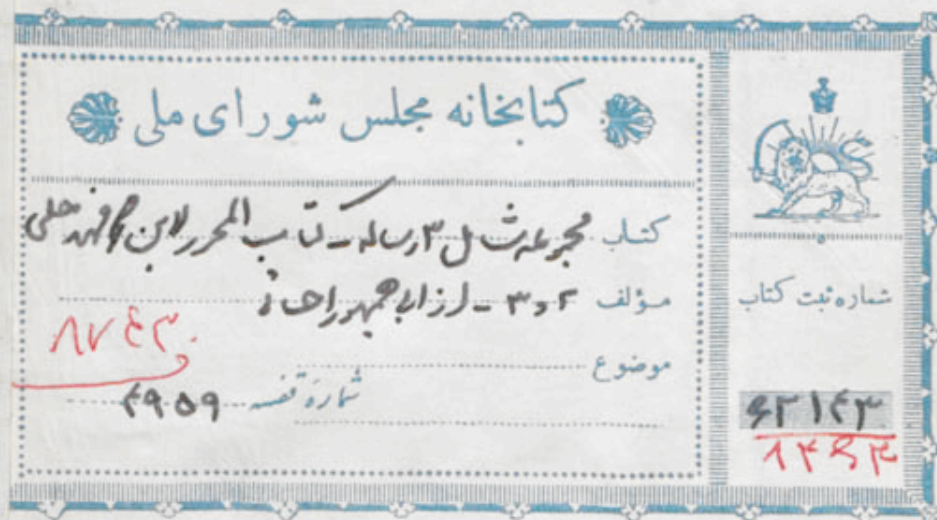 کتابخانه مجلس شورای ملی
کتاب مجموعه شامل ۳ رساله - کتاب المحرر لابن فهد حلی
مؤلف ۲ و ۳ - از ابی جمهور احسائی
موضوع
۸۷۴۳
شماره قفسه ۴۹۵۹
شماره ثبت کتاب
۶۲۱۴۳